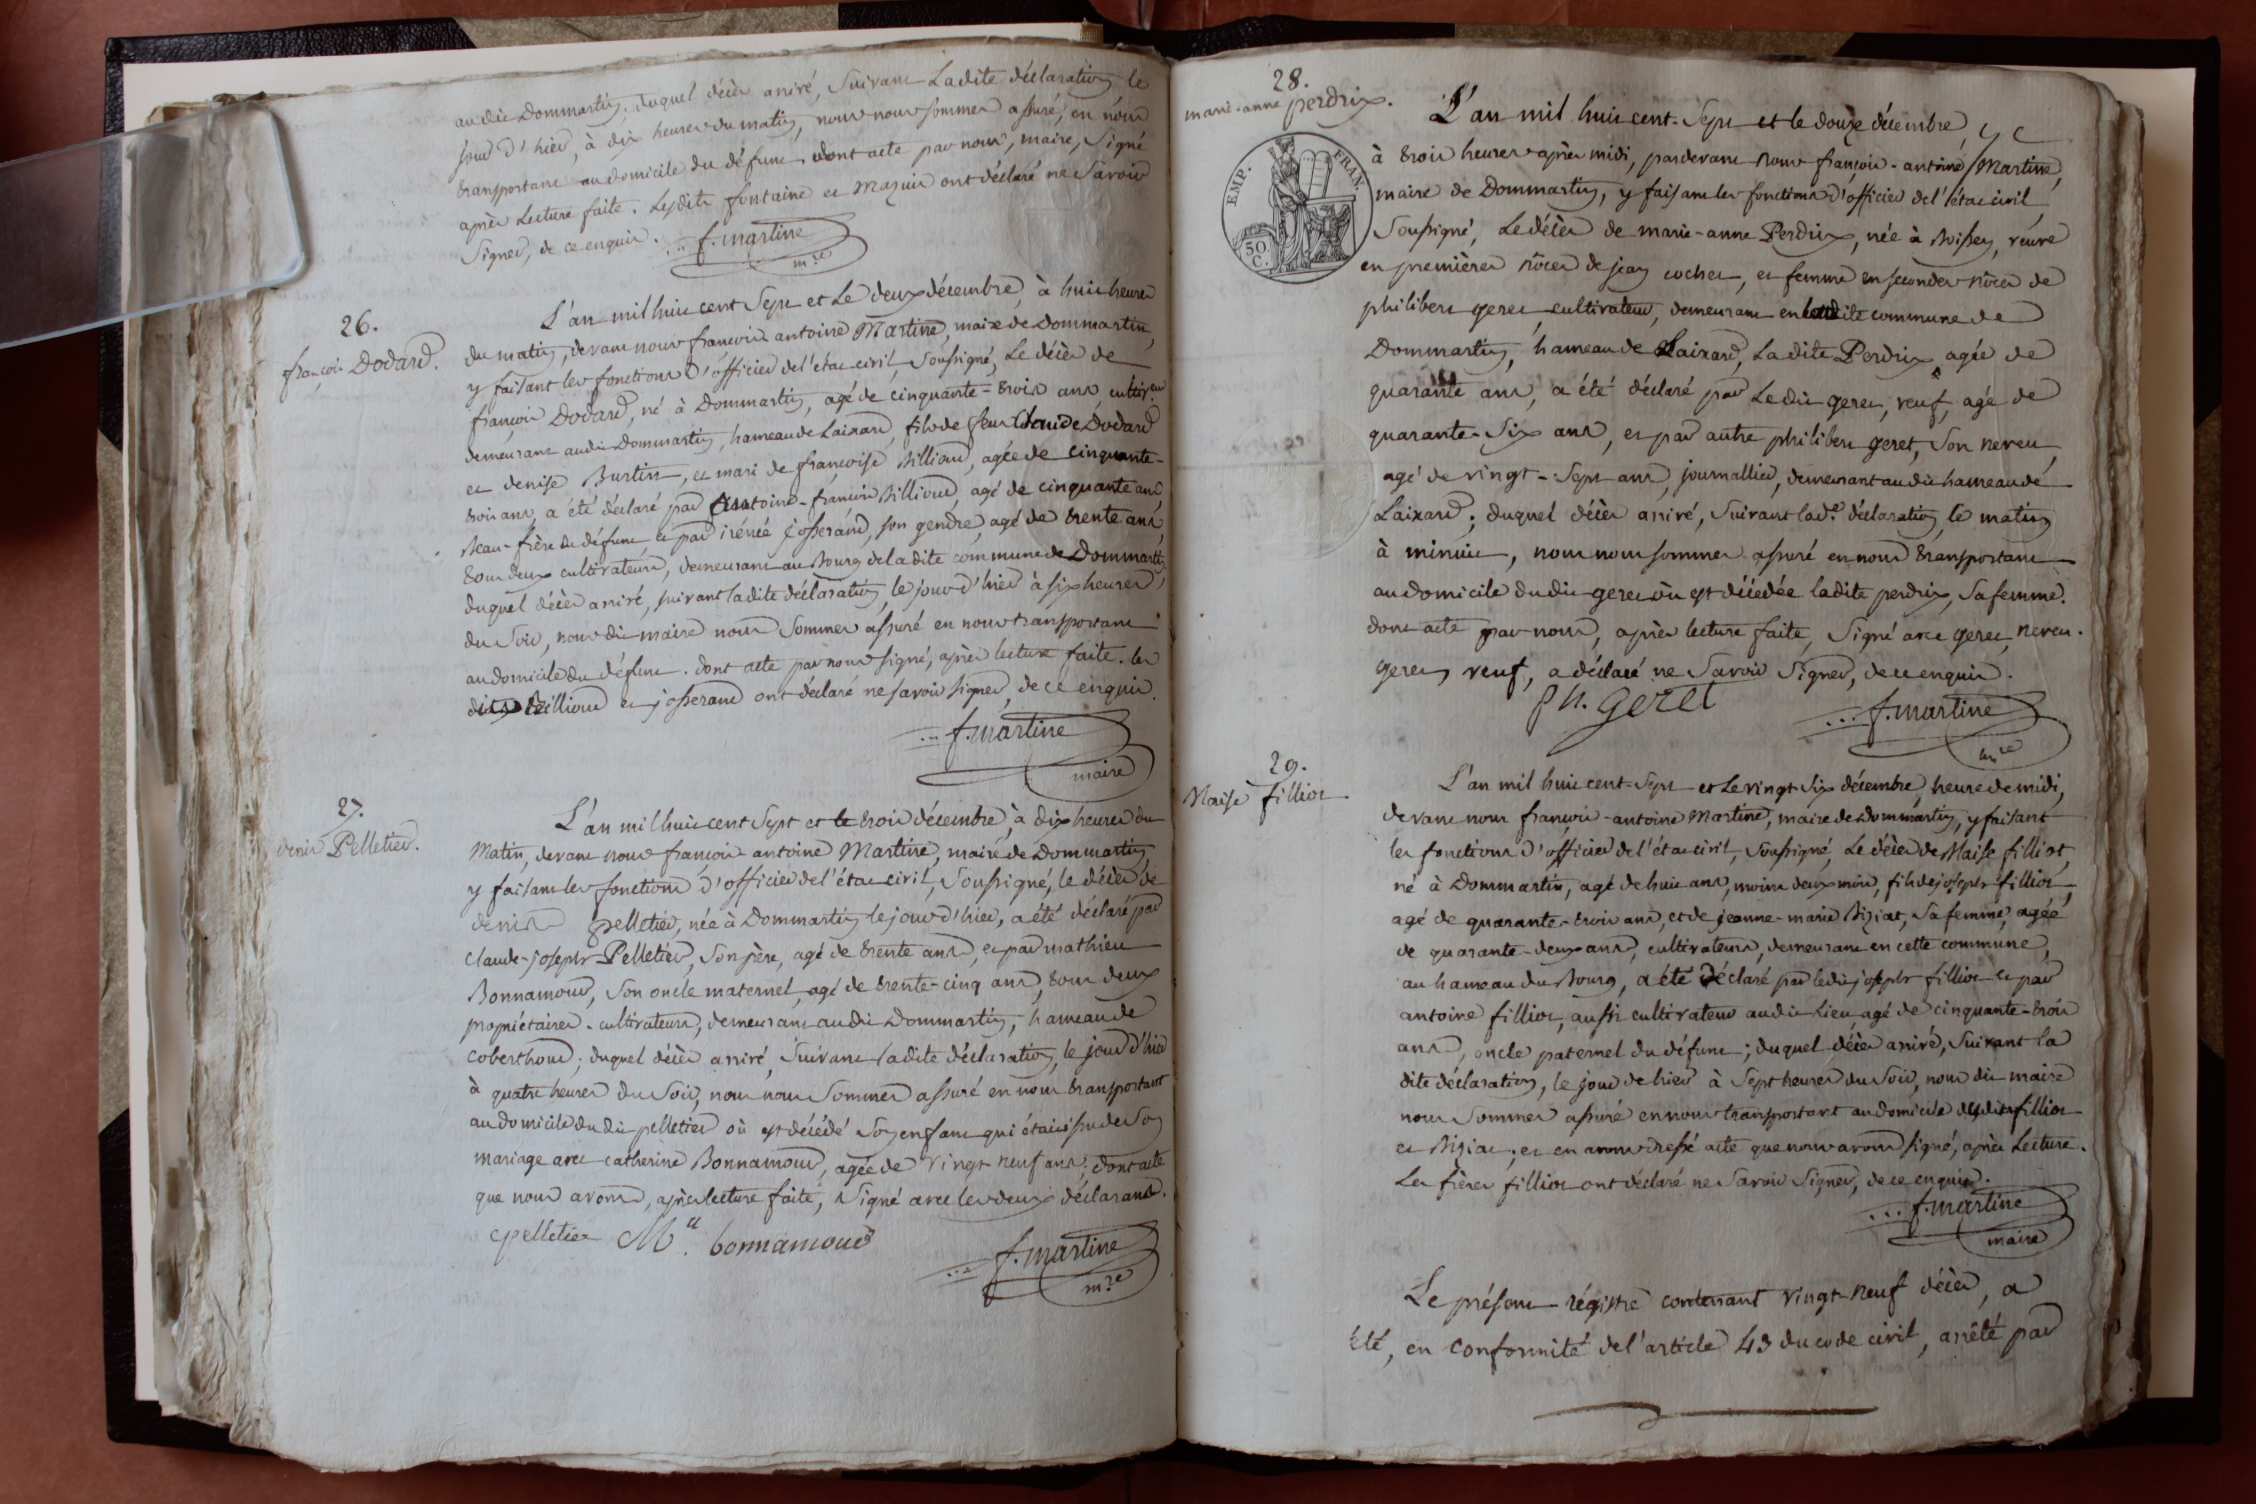 audit Dommartin; duquel décès arrivé, suivant ladite déclaration, le
jour d'hier, à dix heures du matin, nous nous sommes assuré, en nous
transportant au domicile du défunt. dont acte par nous, maire, signé
après lecture faite. Lesdits fontaine et Mazuir ont déclaré ne savoir
signer, de ce enquis.
f. martine
m.re
26.
françois Dodard.
L'an mil huit cent sept et le deux décembre, à huit heures
du matin, devant nous françois antoine Martine, maire de Dommartin,
y faisant les fonctions d'officier de l'état civil, soussigné, le décès de
françois Dodard, né à Dommartin, agé de cinquante-trois ans, cultiv.eur
demeurant audit Dommartin, hameau de Laixard, fils de feus Claude Dodard
et denise Burtin, et mari de françoise Billioud, agée de cinquante-
trois ans, a été déclaré par antoine-françois Billioud, agé de cinquante ans
Beau-frère du défunt et par irénée josserand, son gendre, agé de trente ans,
tous deux cultivateurs, demeurant au Bourg de la dite commune de Dommartin,
duquel décès arrivé, suivant ladite déclaration, le jour d'hier à six heures
du soir, nous dit maire nous sommes assuré en nous transportant
au domicile du défunt. dont acte par nous signé, après lecture faite. les
dits Billioud et josserand ont déclaré ne savoir signer, de ce enquis.
f. martine
maire
27.
denis Pelletier.
L'an mil huit cent sept et le trois décembre, à dix heures du
Matin, devant nous françois antoine Martine, maire de Dommartin
y faisant les fonctions d'officier de l'état civil, soussigné, le décès de
denis pelletier, née à Dommartin le jour d'hier, a été déclaré par
claude-joseph Pelletier, son père, agé de trente ans, et par mathieu
Bonnamour, son oncle maternel, agé de trente-cinq ans, tous deux
propriétaires-cultivateurs, demeurant audit Dommartin, hameau de
coberthoud; duquel décès arrivé, suivant ladite déclaration, le jour d'hier
à quatre heures du soir, nous nous sommes assuré en nous transportant
au domicile dudit pelletier où est décédé son enfant qui était issu de son
mariage avec catherine Bonnamour, agée de vingt neuf ans. dont acte
que nous avons, après lecture faite, signé avec les deux déclarans.
cpelletier M.u bonnamour
f. martine
m.re
28.
marie-anne perdrix.
EMP. FRAN.
50 C.
L'an mil huit cent sept et le douze décembre
à trois heures après midi, pardevant nous françois-antoine Martine,
maire de Dommartin, y faisant les fonctions d'officier de l'état civil
soussigné, le décès de marie-anne Perdrix, née à Boissey, veuve
en premières nôces de jean cochet, et femme en secondes nôces de
philibert geret, cultivateur, demeurant en ladite commune de
Dommartin, hameau de Laixard, ladite Perdrix, agée de
quarante ans, a été déclaré par ledit geret, veuf, agé de
quarante-six ans, et par autre philibert geret, son neveu
agé de vingt-sept ans, journallier, demeurant audit hameau de
Laixard; duquel décès arrivé, suivant lad.e déclaration, le matin
à minuit, nous nous sommes assuré en nous transportant
au domicile dudit geret où est décédée ladite perdrix, sa femme.
dont acte par nous, après lecture faite, signé avec geret, neveu.
geret, veuf, a déclaré ne savoir signer, de ce enquis.
ph. geret
f. martine
m.re
29.
Blaise fillior
L'an mil huit cent sept et le vingt six décembre, heure de midi,
devant nous françois-antoine Martine, maire de Dommartin, y faisant
les fonctions d'officier de l'état civil, soussigné, le décès de Blaise filliot,
né à Dommartin, agé de huit ans, moins deux mois, fils de joseph filliot
agé de quarante-trois ans, et de jeanne-marie Biziat, sa femme, agée
de quarante-deux ans, cultivateurs, demeurant en cette commune,
au hameau du Bourg, a été déclaré par ledit joseph filliot et par
antoine filliot, aussi cultivateur audit lieu, agé de cinquante-trois
ans, oncle paternel du défunt; duquel décès arrivé, suivant la
dite déclaration, le jour de hier à sept heures du soir, nous dit maire
nous sommes assuré en nous transportant au domicile desdits filliot
et Biziat; et en avons dressé acte que nous avons signé, après lecture.
Les frères filliot ont déclaré ne savoir signer, de ce enquis.
f. martine
maire
Le présent régistre contenant vingt-neuf décès, a
été, en conformité de l'article 43 du code civil, arrêté par